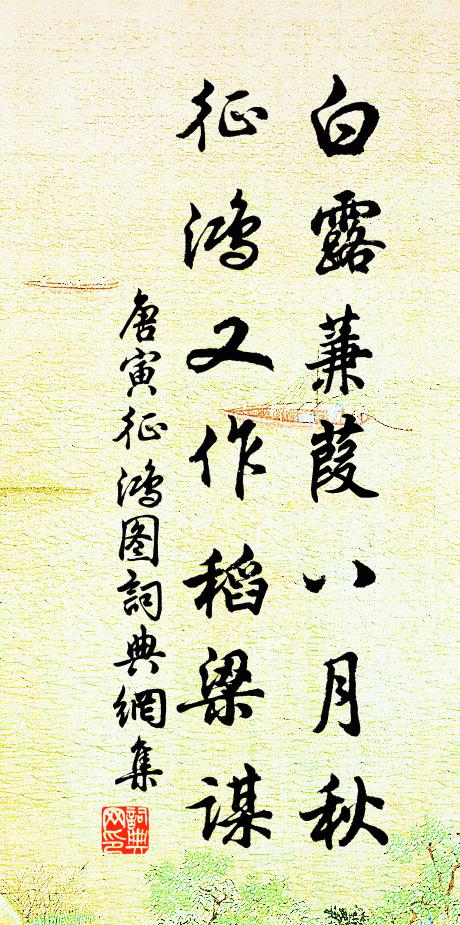 白露蒹葭八月秋
征鸿又作稻梁谋
唐寅征鸿图詞典網集
詞典网印